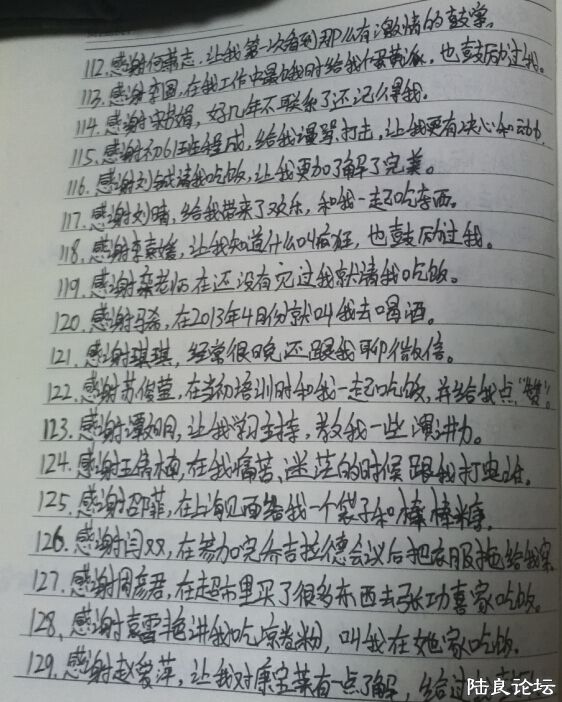 112.感谢何南志，让我第一次看到那么有激情的鼓掌。
113.感谢李图，在我工作中最饿时给我个蛋黄派，也鼓励过我。
114.感谢宋娟，好几年不联系了还记得我。
115.感谢初61班程成，给我谩骂、打击，让我更有决心和动力
116.感谢刘诚请我吃饭，让我更加了解了完美。
117.感谢刘晴，给我带来了欢乐，和我一起吃东西。
118.感谢李媛，让我知道什么叫疯狂，也鼓励过我。
119.感谢栾老师，在还没有见过我就请我吃饭。
120.感谢马希，在2013年4月份就叫我去喝酒。
121.感谢琪琪，经常很晚还跟我聊微信。
122.感谢苏俊莹，在当初培训时和我一起吃饭，并给我点"赞"。
123.感谢谭如月，让我学习主持，教我一些演讲力。
124.感谢王倩楠，在我痛苦、迷茫的时候跟我打电话。
125.感谢邵菲，在上海见面给我一个袋子和棒棒米唐。
126.感谢闫双，在参加完乔吉拉德会议后把衣服拖给我穿
127.感谢周彦君，在超市里买了很多东西去张功喜家吃饭。
128.感谢袁雪艳讲我吃凉卷粉，叫我在她家吃饭。
129.感谢赵爱萍，让我对康宝莱有一点了解，给过
陆良论坛